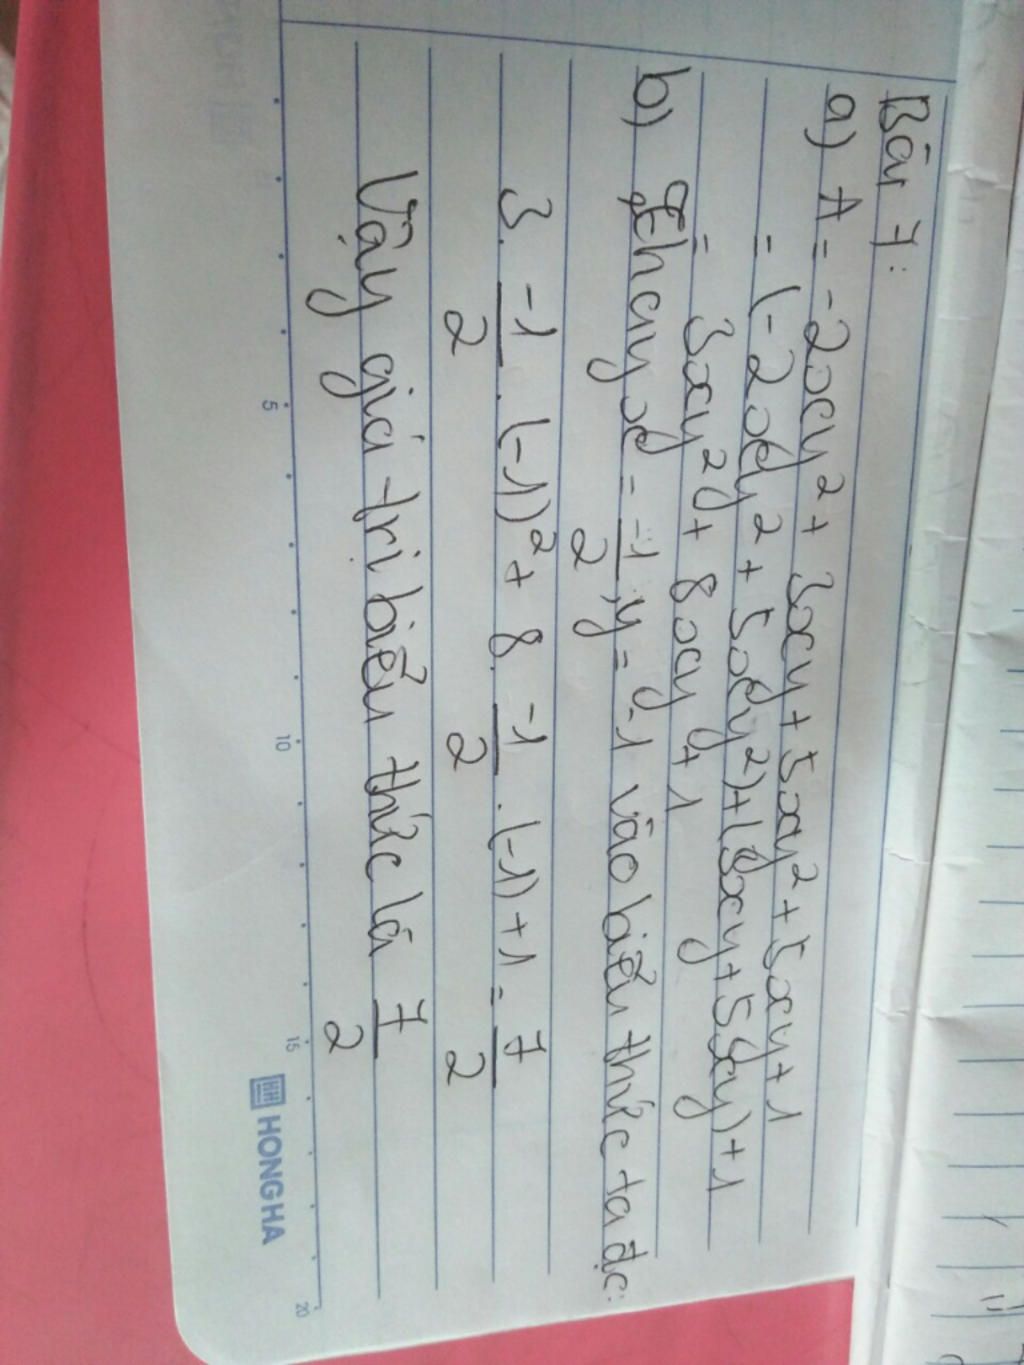 Bài 7:
a) A = -2xy² + 3xy + 5xy² + 5xy + 1
= (-2xy² + 5xy²) + (3xy + 5xy) + 1
= 3xy² + 8xy + 1
b) Thay x = -1/2, y = -1 vào biểu thức ta đc:
3. -1/2 . (-1)² + 8. -1/2 . (-1) + 1 = 7/2
Vậy giá trị biểu thức là 7/2
5 10 15 20
HONG HA